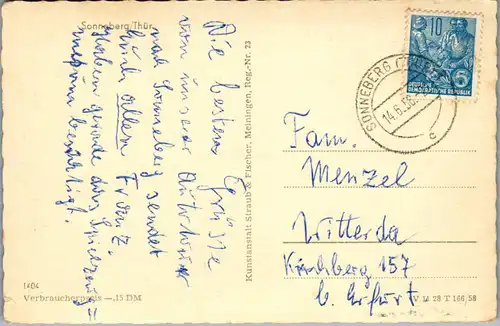 Sonneberg/Thür.
Die besten Grüsse
von unserer Autotour
nach Sonneberg sendet
Euch allen Franz.
Haben gerade das Spielzeug=
museum besichtigt.
Kunstanstalt Straub & Fischer, Meiningen, Reg.-Nr. 23
10
DEUTSCHE
DEMOKRATISCHE REPUBLIK
5
SONNEBERG
14.6.58
c
Fam.
Menzel
Witterda
Kirchberg 157
b. Erfurt
1404
Verbraucherpreis —.15 DM
V 14 28 T 166/58